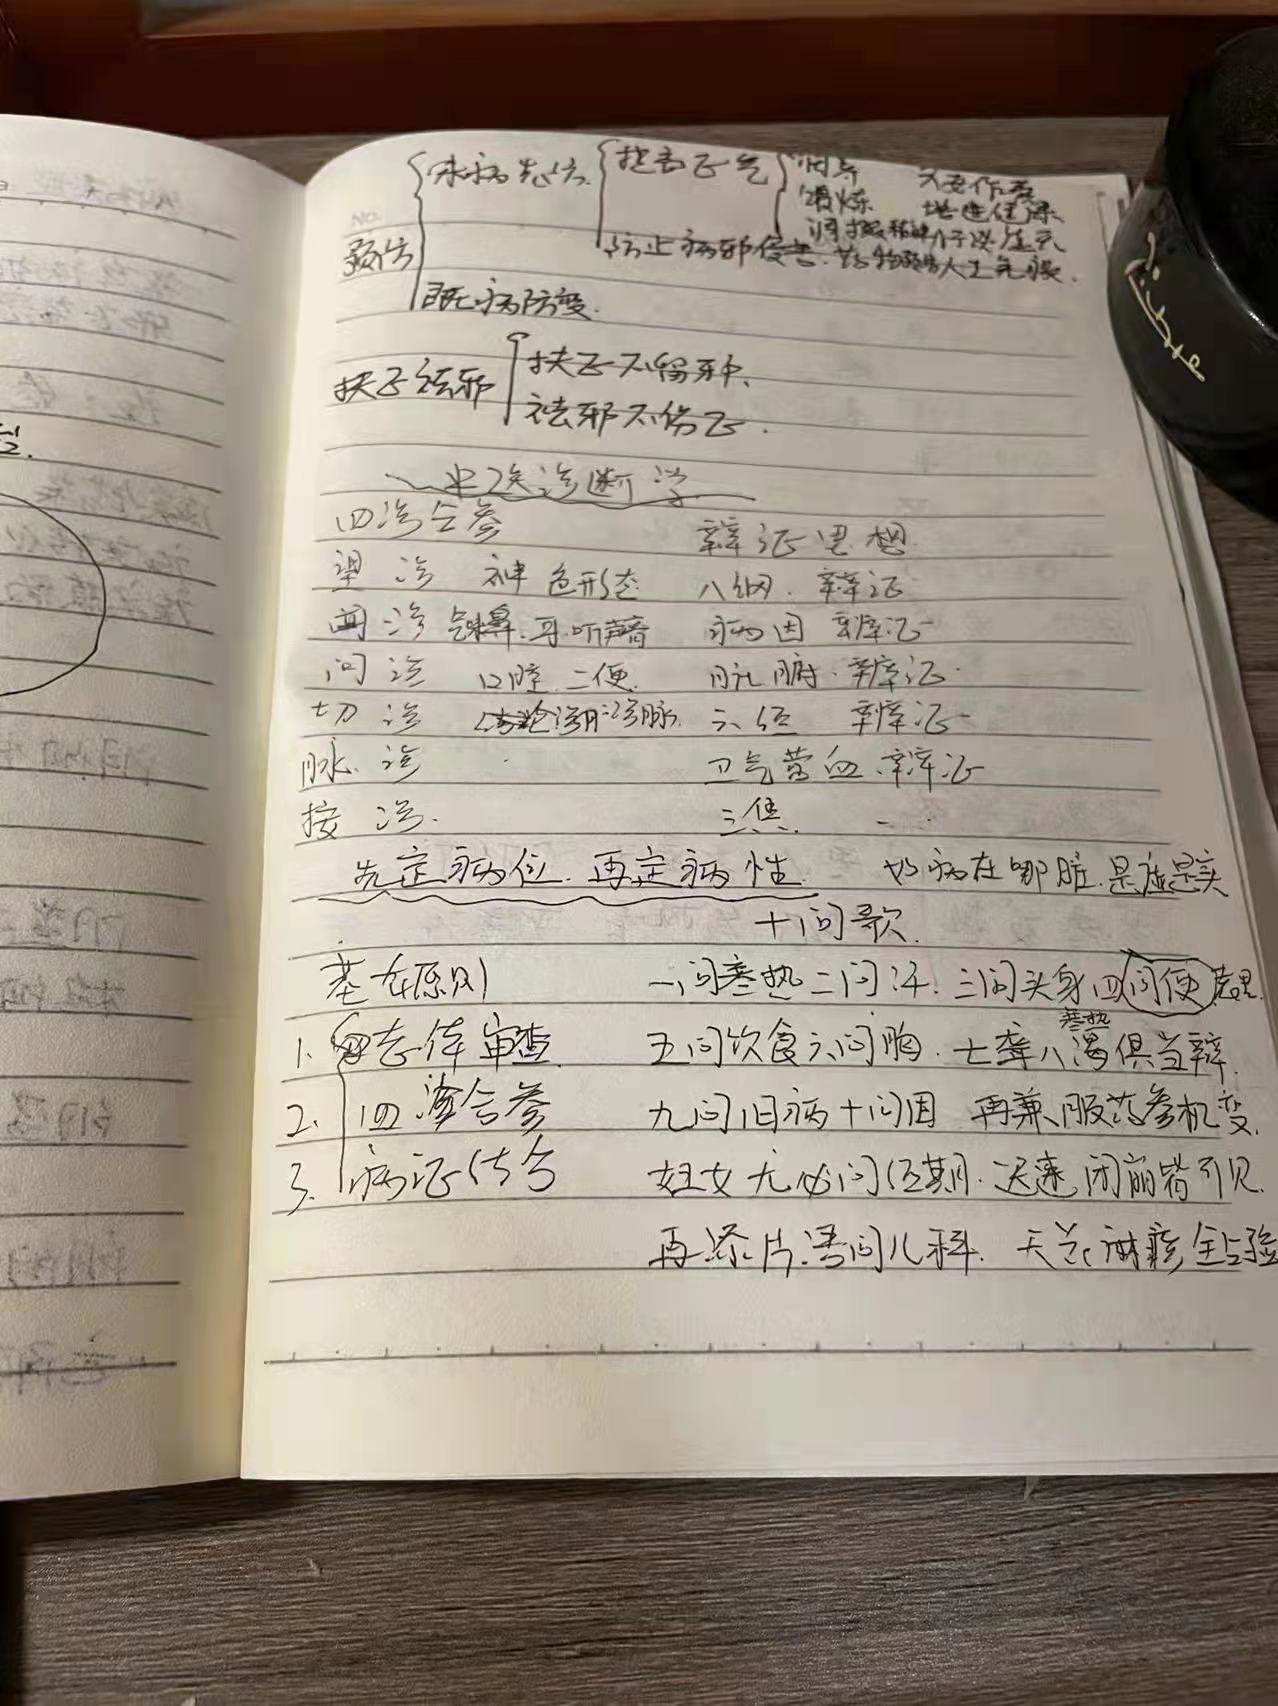 NO.
预防
未病先防
扶助正气
调养
锻炼
防止病邪侵害
既病防变
扶正祛邪
扶正不留邪、
祛邪不伤正.
中医诊断学
四诊合参 辩证思想
望诊 神色形态 八纲 辩证
闻诊 鼻.耳听声音 病因 辩证
问诊 口腔 二便 脏腑 辩证
切诊 诊脉 六经 辩证
脉诊 卫气营血 辩证
按诊. 三焦
先定病位.再定病性 如病在哪脏.是虚是实
十问歌
基本原则 一问寒热二问汗.三问头身四问便
寒热
1. 整体审查 五问饮食六问胸.七聋八渴俱当辩.
2. 四诊合参 九问旧病十问因 再兼服药参机变.
3. 病证结合 妇女尤必问经期.迟速闭崩皆可见.
再添片语问儿科.天花麻疹全占验